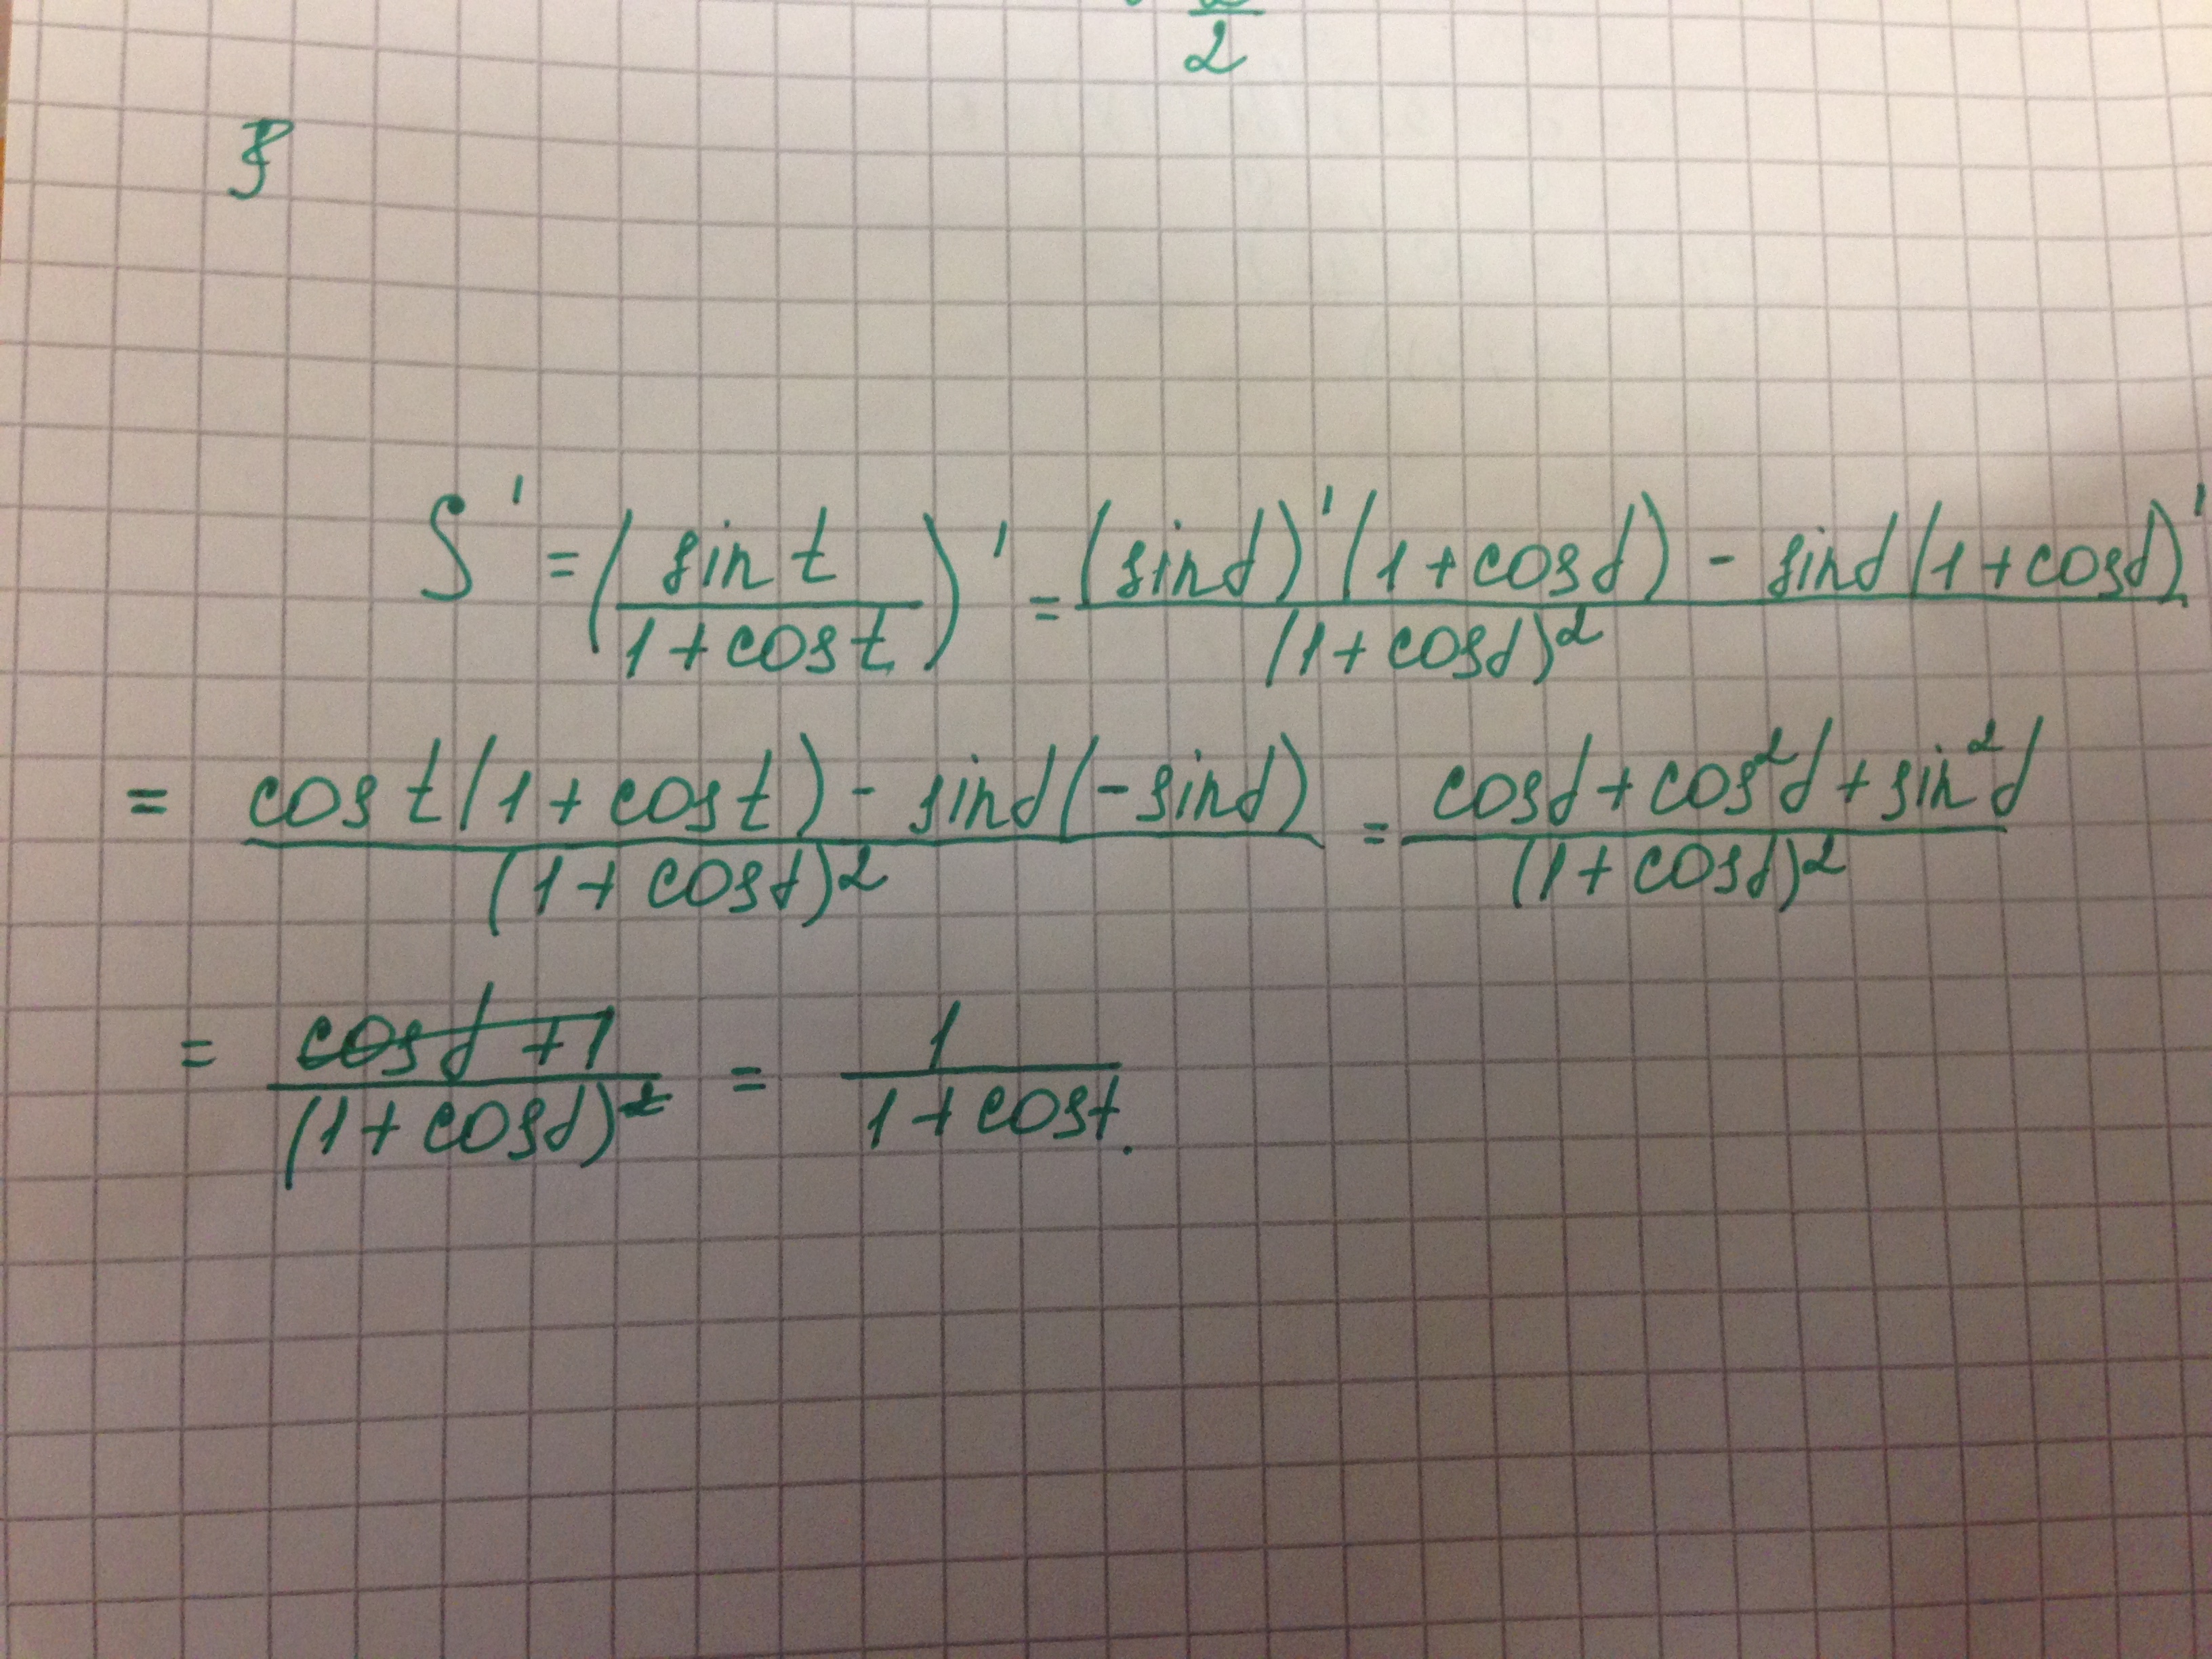 2
S' = (sin t / 1 + cos t)' = (sin t)'(1 + cos t) - sin t(1 + cos t)' / (1 + cos t)²
= cos t(1 + cos t) - sin t(-sin t) / (1 + cos t)² = cos t + cos² t + sin² t / (1 + cos t)²
= cos t + 1 / (1 + cos t)² = 1 / 1 + cos t.